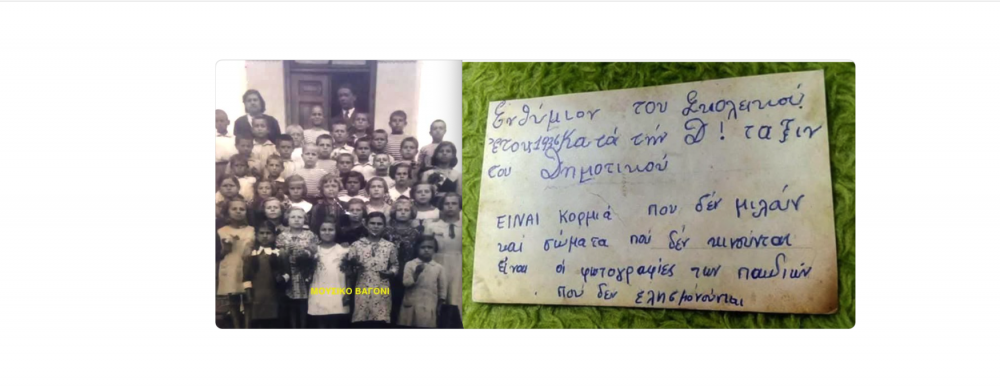 ΜΟΥΣΙΚΟ ΒΑΓΟΝΙ
Ενθύμιον του Σχολεικού
Έτους 1936 Κατά τήν Δ! ταξιν
του Δημοτικού
ΕΙΝΑΙ κορμιά που δέν μιλάν
και σώματα πού δέν κινούνται
είναι οι φωτογραφίες των παιδιών
πού δεν ελησμονούνται